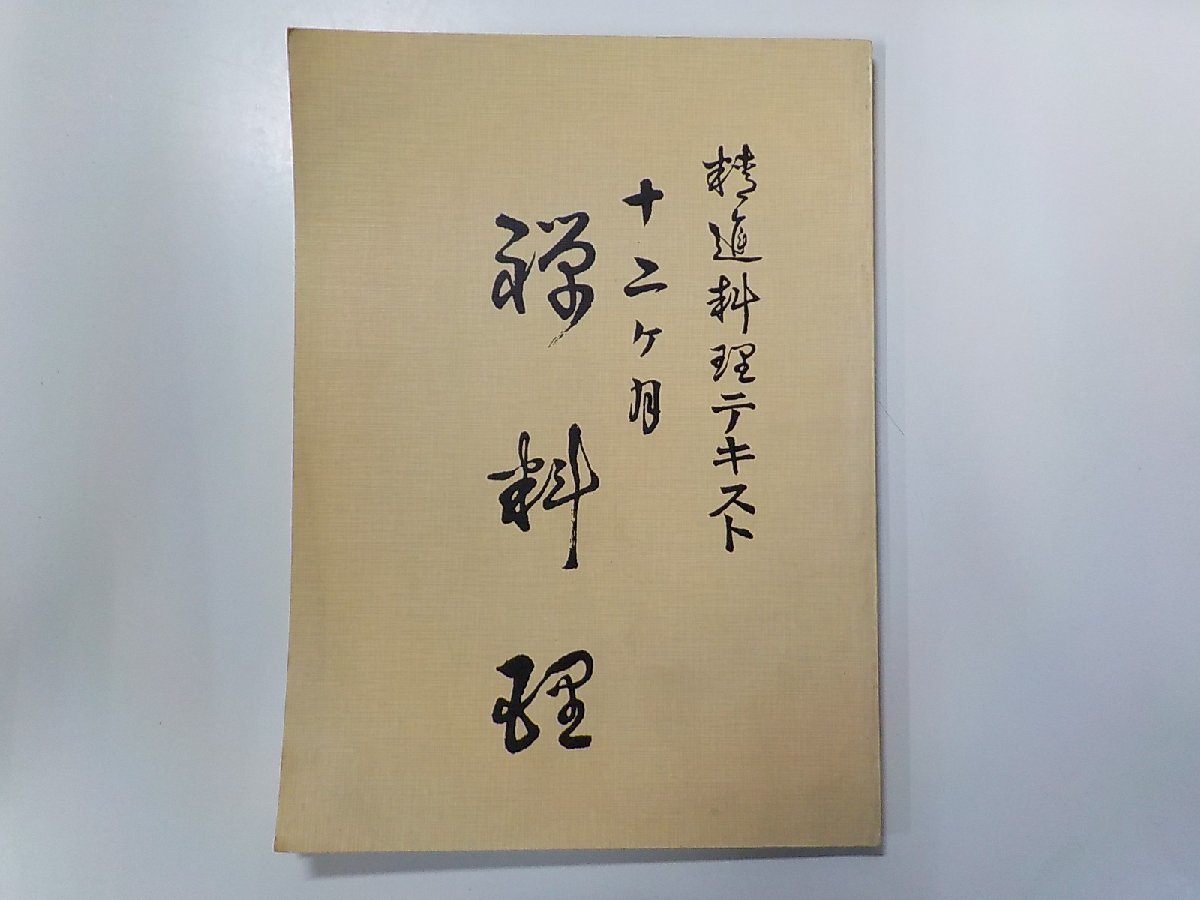 精進料理テキスト
十二ヶ月
禅料理